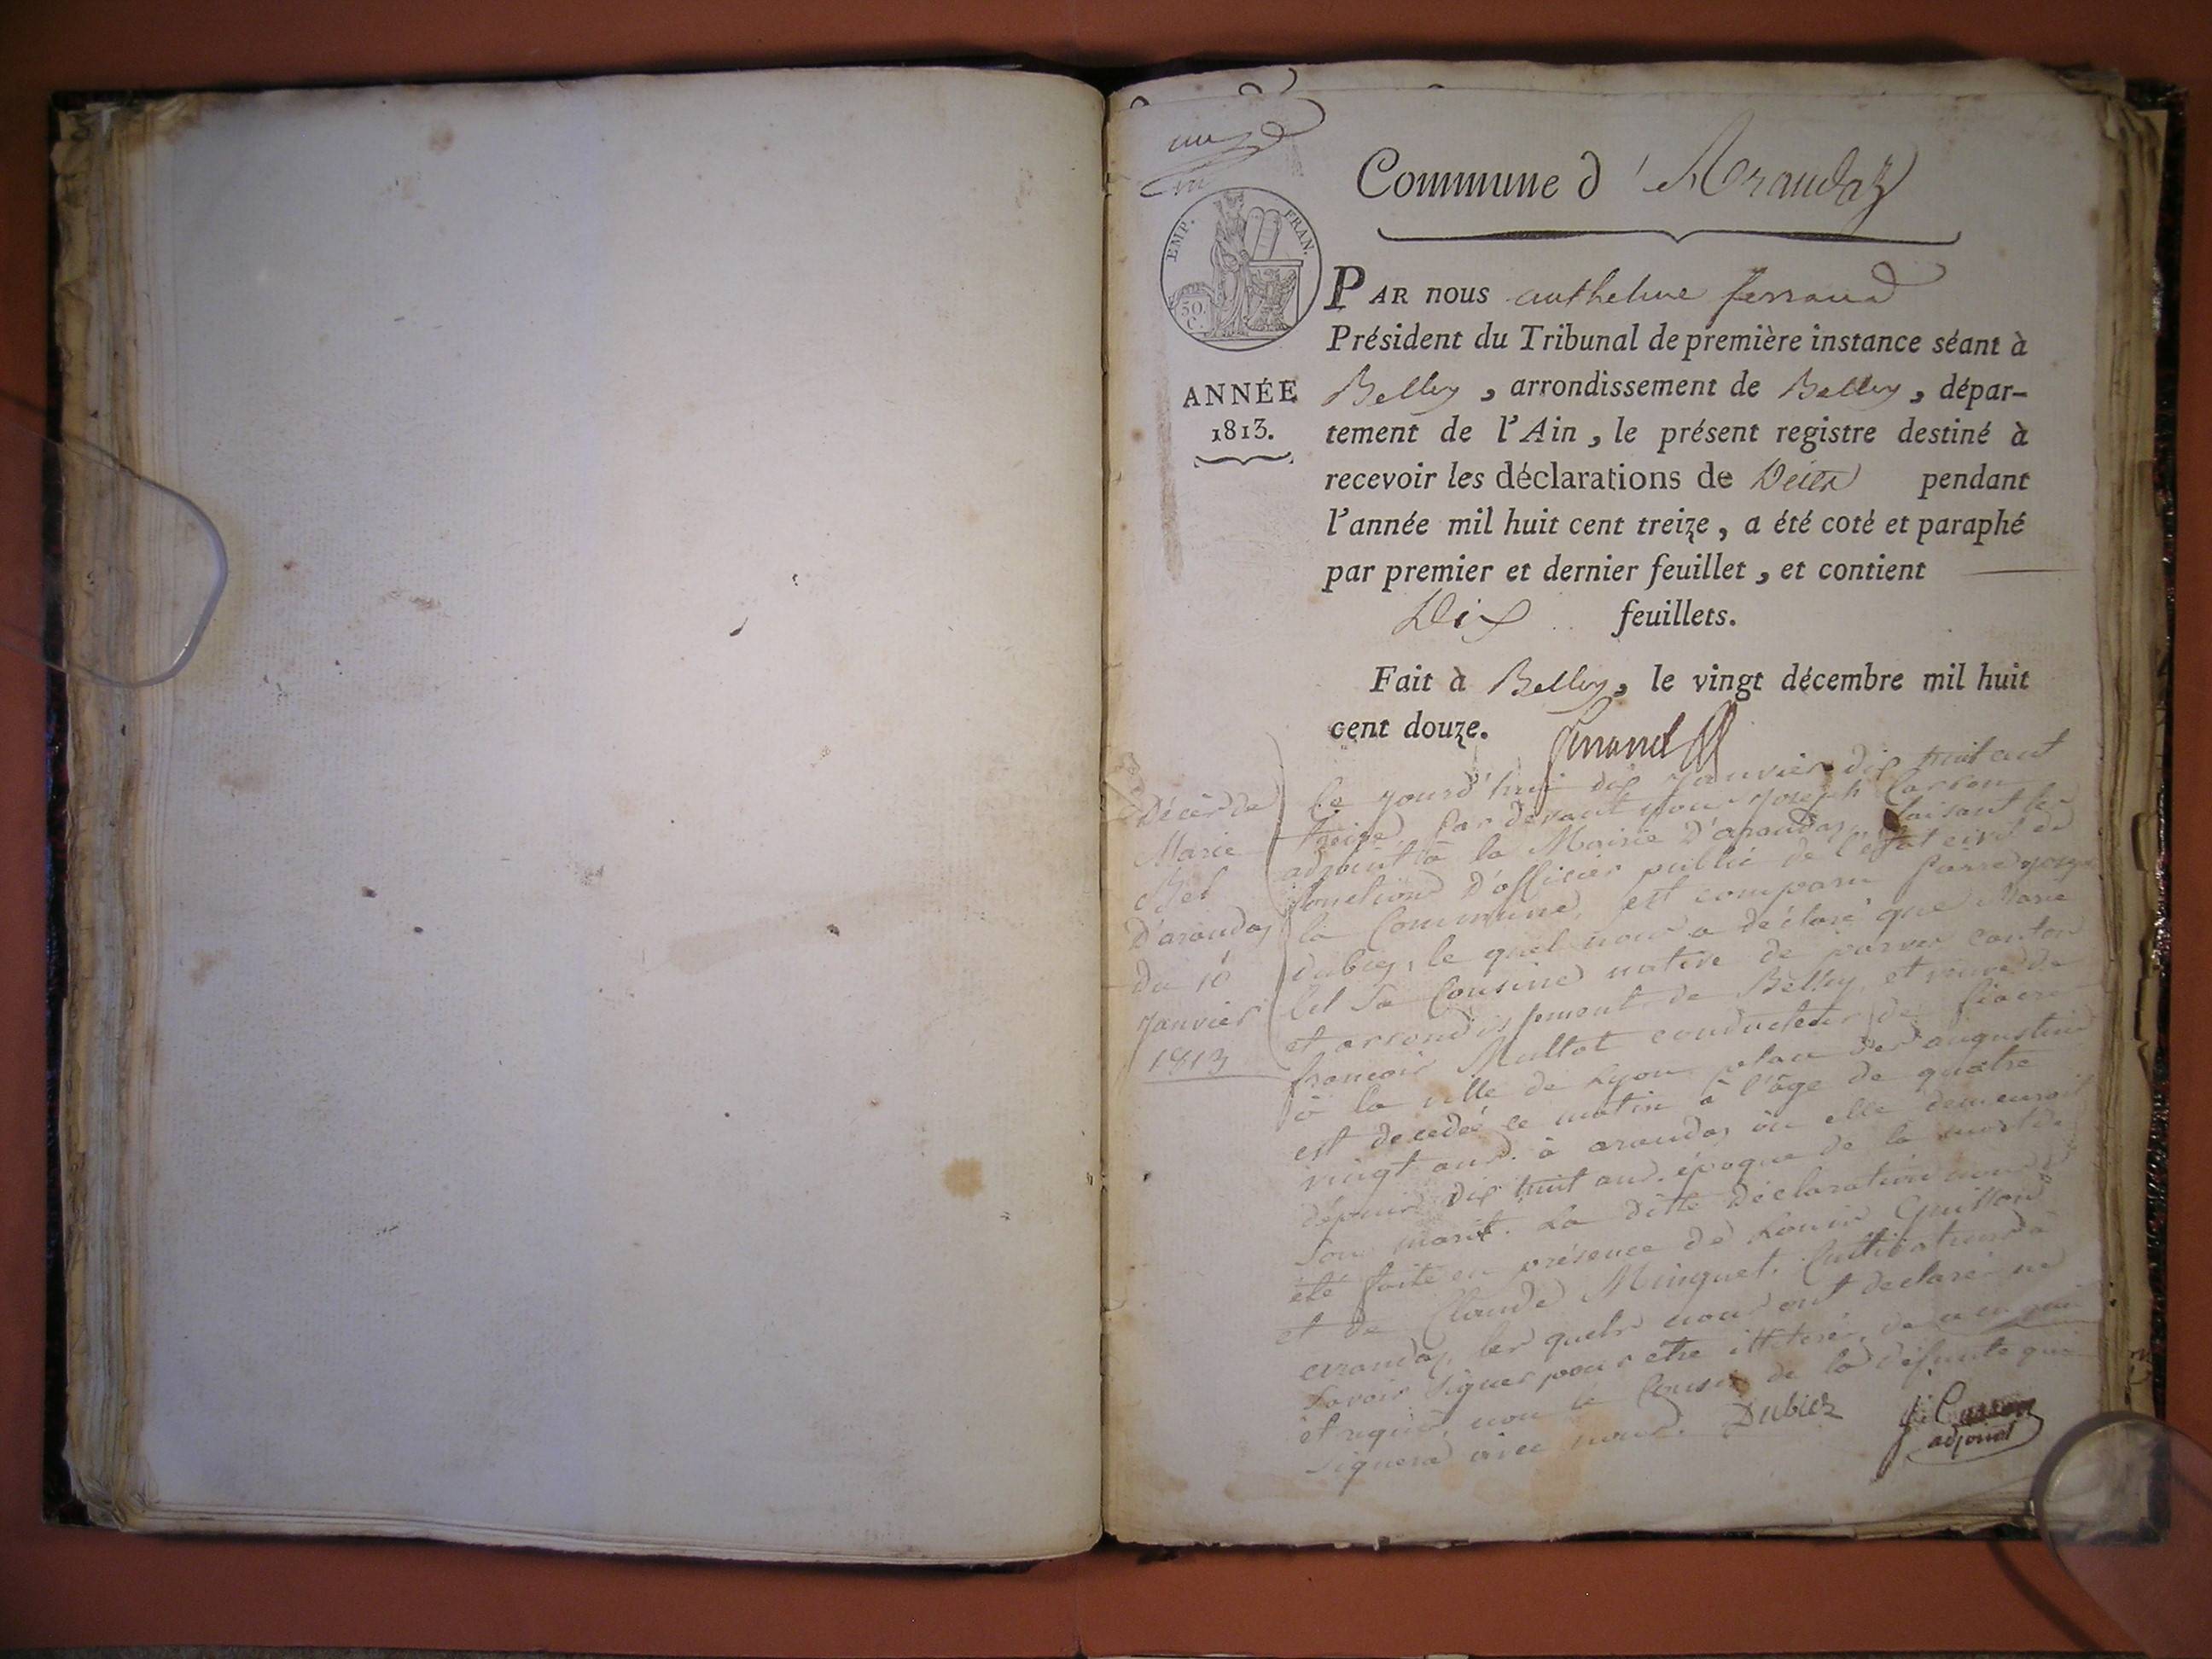 Commune d'Arandaz
EMP. FRAN.
50.
C.
PAR nous anthelme ferrand
Président du Tribunal de première instance séant à
ANNÉE
1813.
Belley, arrondissement de Belley, dépar-
tement de l'Ain, le présent registre destiné à
recevoir les déclarations de Décès pendant
l'année mil huit cent treize, a été coté et paraphé
par premier et dernier feuillet, et contient
Dix feuillets.
Fait à Belley, le vingt décembre mil huit
cent douze.
Décès de
Marie
Bel
D'arandas
du 10
Janvier
1813
Ce jourd'hui dix Janvier dix huit cent
treize, Par devant nous Joseph Carron
adjoint à la Mairie D'arandas, faisant les
fonctions D'officier public de l'état civil de
la Commune, est comparu
Dubiez, le quel nous a déclaré que Marie
Bel sa Cousine native de canton
et arrondissement de Belley, et veuve de
françois Mullat conducteur de fiacre
à la ville de Lyon place des augustins
est decedée ce matin à l'âge de quatre
vingt ans à arandas où elle demeuroit
depuis dix huit ans époque de la mort de
son marit. La ditte Déclaration nous a
été faite en présence de Louis Guillon
et de Claude Minguet, Cultivateurs à
arandas, les quels nous ont declaré ne
savoir signer pour être ittéré, de ce
et requis, non le Cousin de la défunte qui
signera avec nous. Dubiez
J. Carron
adjoint